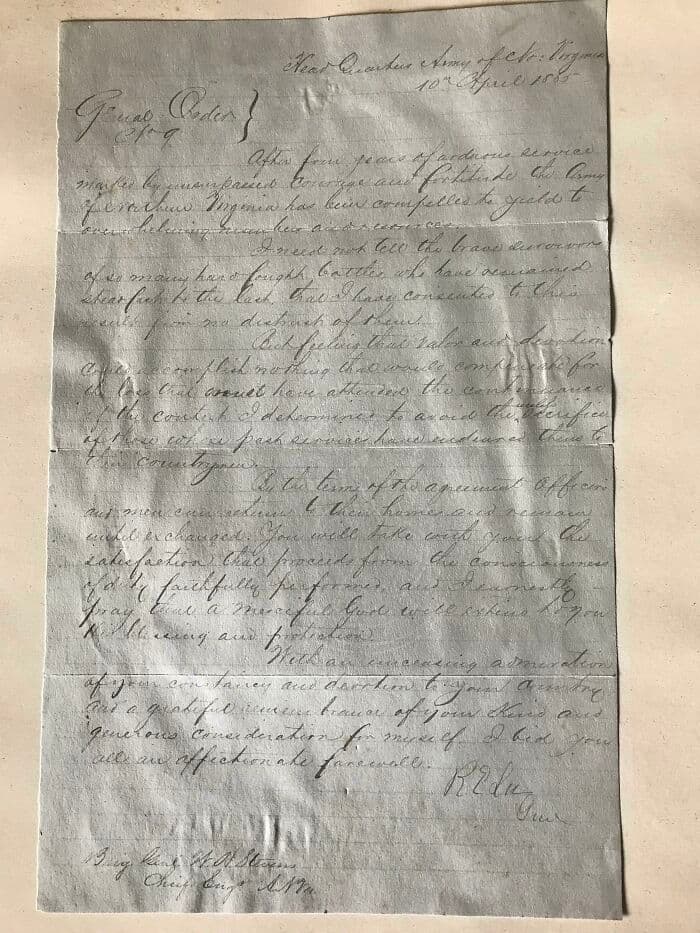 Head Quarters Army of No: Virginia
10th April 1865
General Order
No 9
After four years of arduous service
marked by unsurpassed courage and fortitude the Army
of Northern Virginia has been compelled to yield to
overwhelming numbers and resources.
I need not tell the brave survivors
of so many hard fought battles who have remained
steadfast to the last that I have consented to this
result from no distrust of them.
But feeling that valor and devotion
could accomplish nothing that would compensate for
the loss that must have attended the continuance
of the contest I determined to avoid the useless sacrifice
of those whose past services have endeared them to
their countrymen.
By the terms of the agreement Officers
and men can return to their homes and remain
until exchanged. You will take with you the
satisfaction that proceeds from the consciousness
of duty faithfully performed, and I earnestly
pray that a Merciful God will extend to you
His blessing and protection
With an unceasing admiration
of your constancy and devotion to your Country
and a grateful remembrance of your Kind and
generous consideration for myself I bid you
all an affectionate farewell.
R E Lee
Genl
Brig Genl W. H. Stevens
Chief Engr A N Va